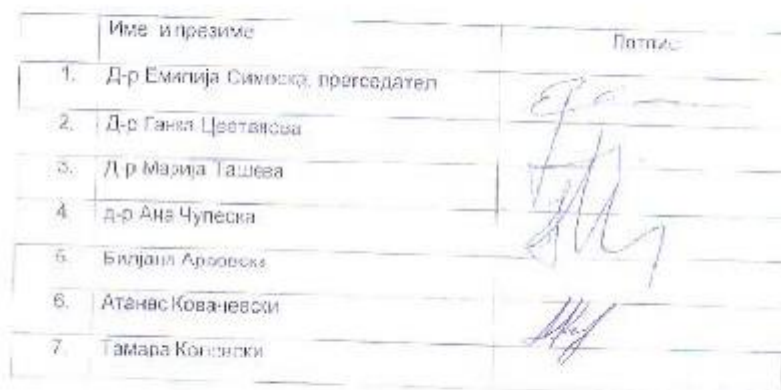 Име и презиме Потпис
1. Д-р Емилија Симоска, претседател
2. Д-р Ганка Цветанова
3. Д-р Марија Ташева
4. д-р Ана Чупеска
5. Билјана
6. Атанас Ковачевски
7. Тамара